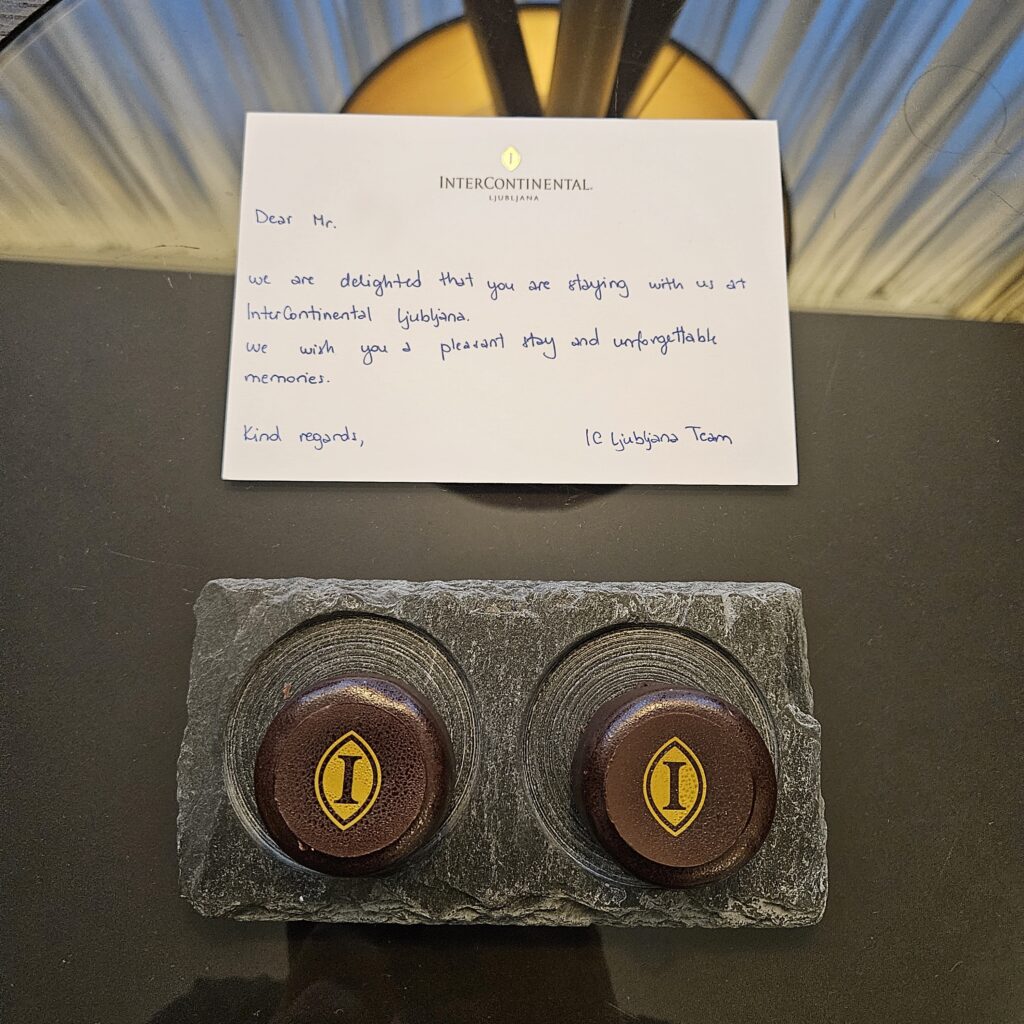 I
INTERCONTINENTAL.
LJUBLJANA
Dear Mr.
we are delighted that you are staying with us at
InterContinental Ljubljana.
we wish you a pleasant stay and unforgettable
memories.
Kind regards, IC Ljubljana Team
I I